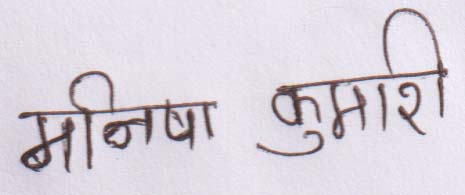 मनिषा कुमारी